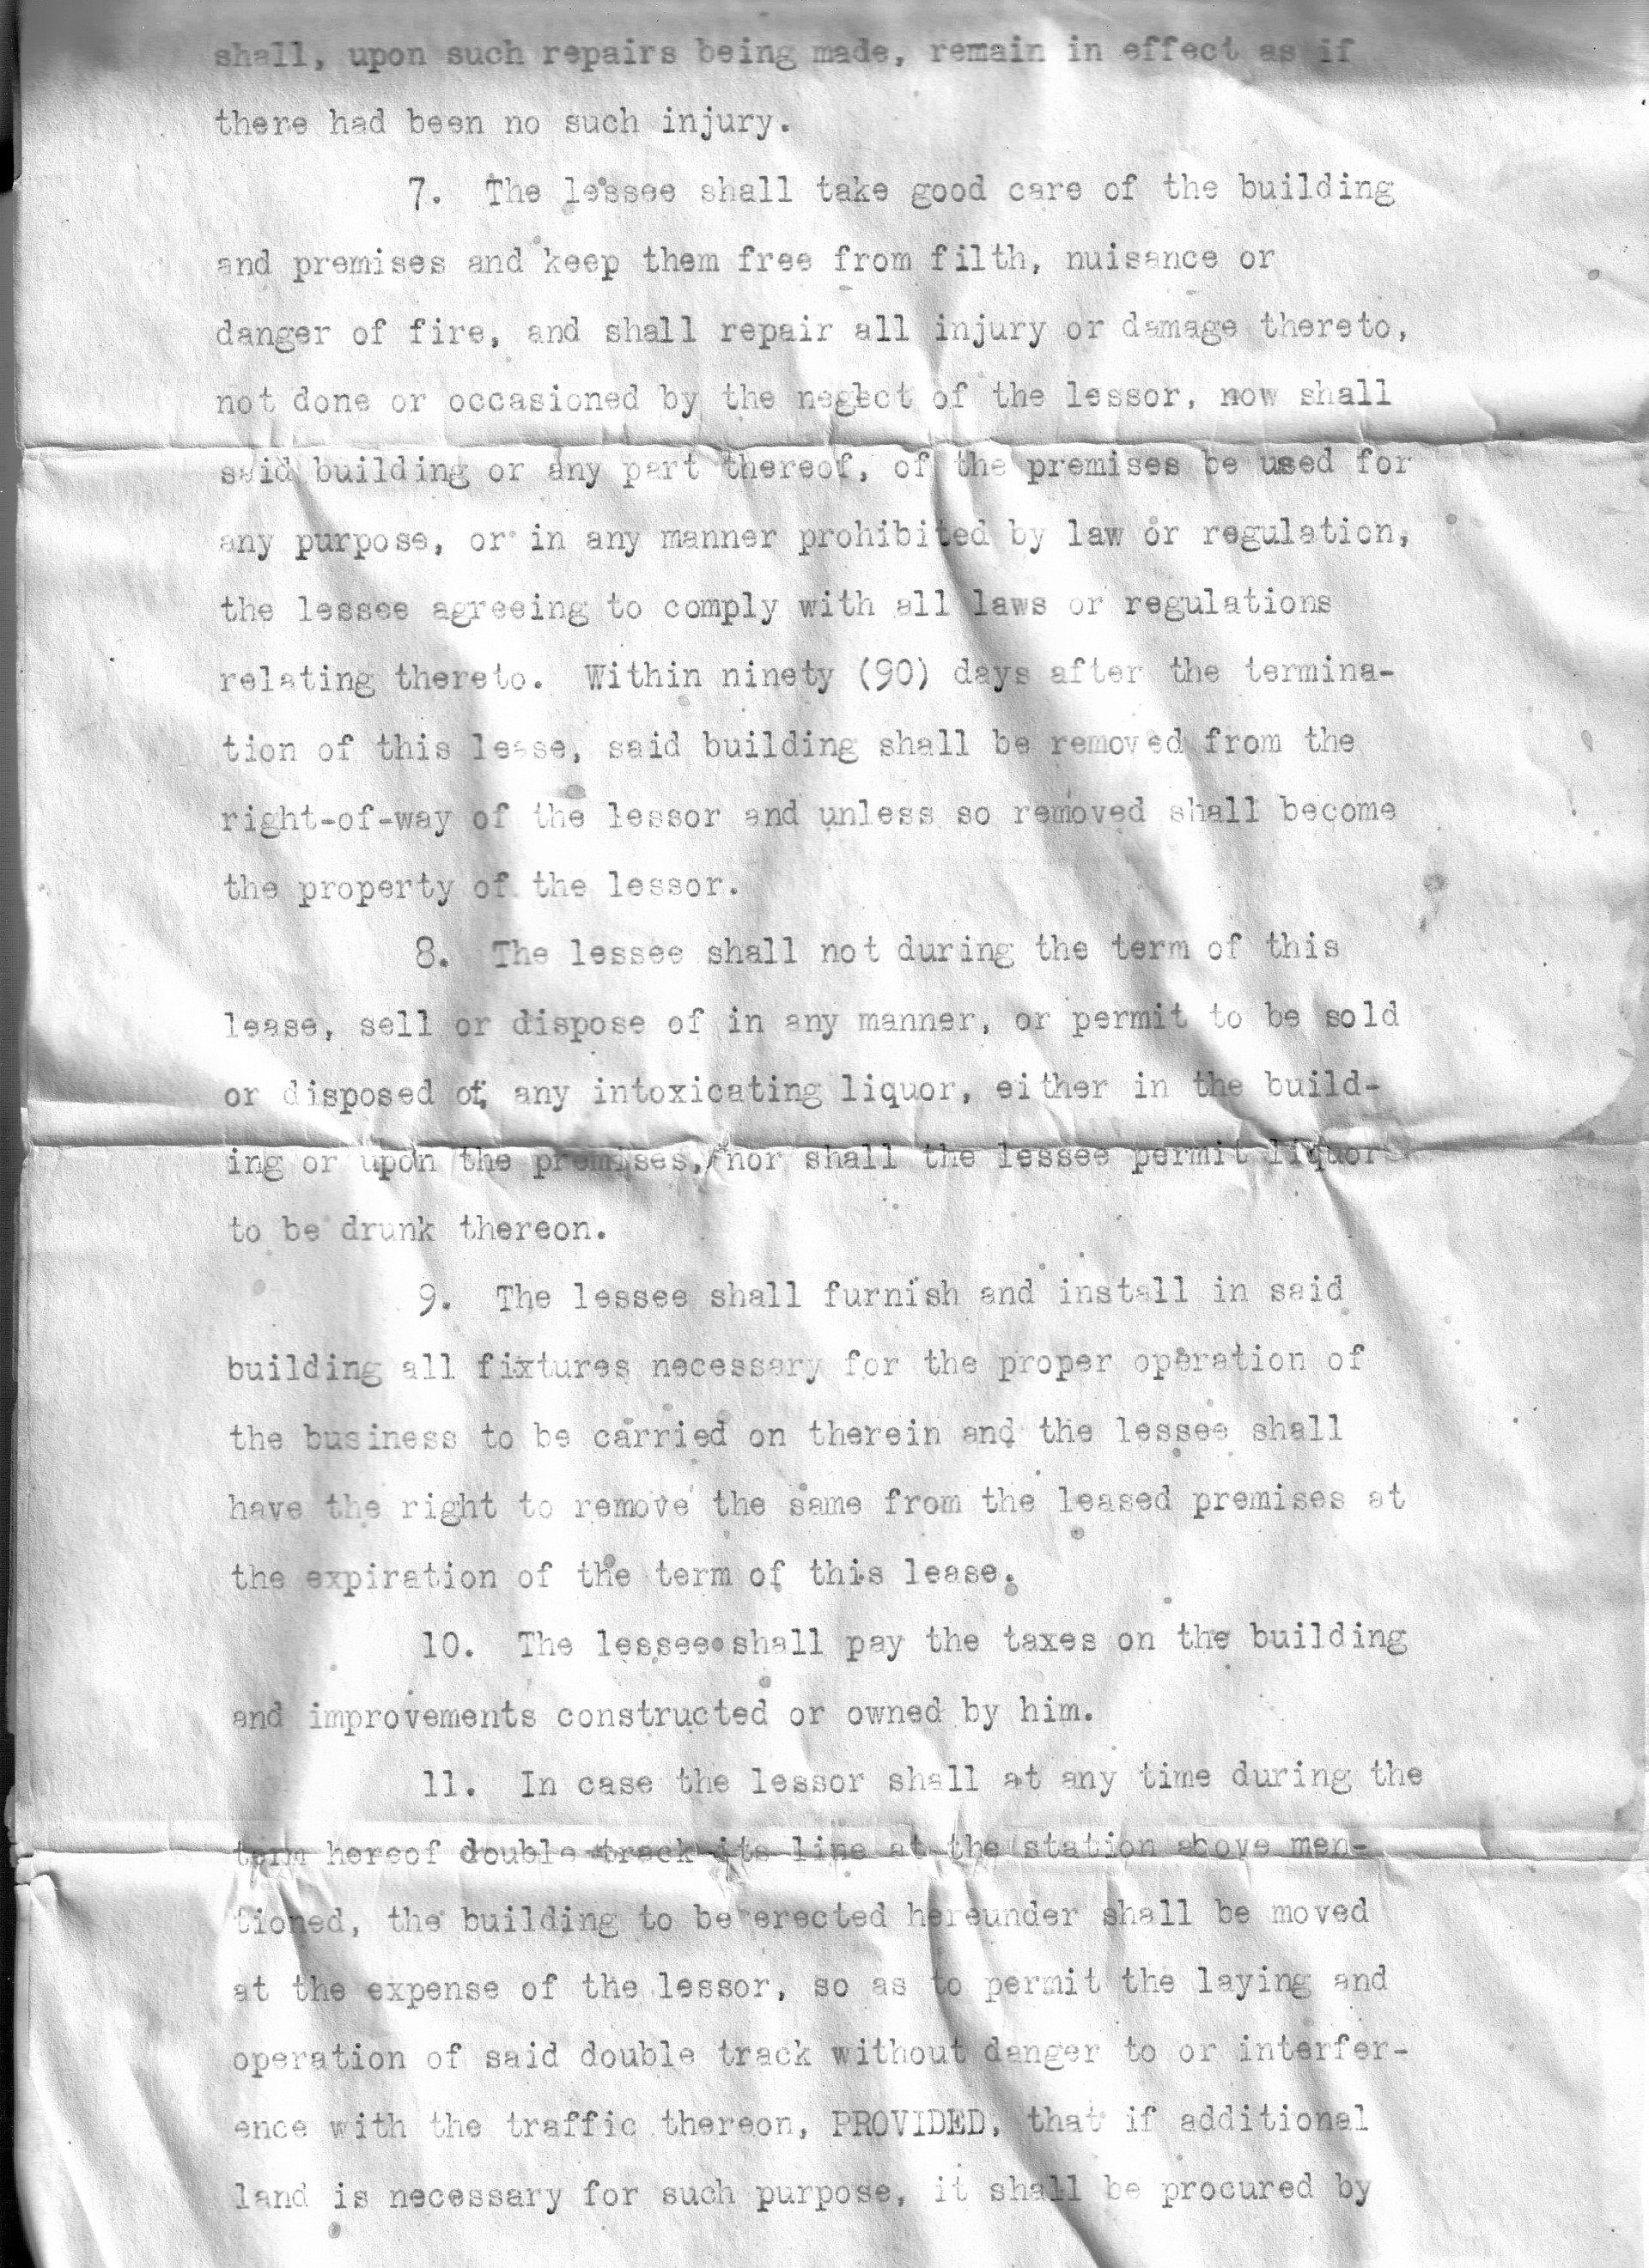 shall, upon such repairs being made, remain in effect as if
there had been no such injury.
7. The lessee shall take good care of the building
and premises and keep them free from filth, nuisance or
danger of fire, and shall repair all injury or damage thereto,
not done or occasioned by the neglect of the lessor, now shall
said building or any part thereof, of the premises be used for
any purpose, or in any manner prohibited by law or regulation,
the lessee agreeing to comply with all laws or regulations
relating thereto. Within ninety (90) days after the termina-
tion of this lease, said building shall be removed from the
right-of-way of the lessor and unless so removed shall become
the property of the lessor.
8. The lessee shall not during the term of this
lease, sell or dispose of in any manner, or permit to be sold
or disposed of, any intoxicating liquor, either in the build-
ing or upon the premises, nor shall the lessee permit liquor
to be drunk thereon.
9. The lessee shall furnish and install in said
building all fixtures necessary for the proper operation of
the business to be carried on therein and the lessee shall
have the right to remove the same from the leased premises at
the expiration of the term of this lease.
10. The lessee shall pay the taxes on the building
and improvements constructed or owned by him.
11. In case the lessor shall at any time during the
term hereof double track its line at the station above men-
tioned, the building to be erected hereunder shall be moved
at the expense of the lessor, so as to permit the laying and
operation of said double track without danger to or interfer-
ence with the traffic thereon, PROVIDED, that if additional
land is necessary for such purpose, it shall be procured by